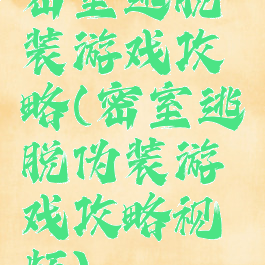 密室逃脱
装游戏攻
略(密室逃
脱伪装游
戏攻略视
频)